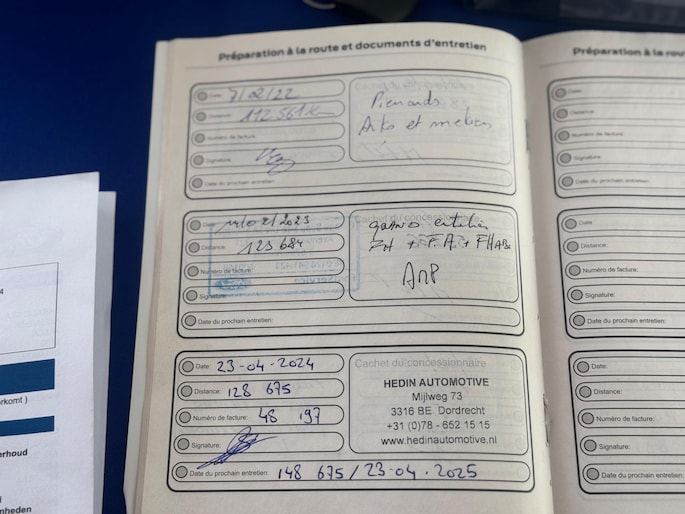 Préparation à la route et documents d'entretien
Date: 7/02/22
Distance: 112 561 Km
Numéro de facture:
Signature:
Date du prochain entretien:
Arts et
Date: 14/02/2023
Distance: 123 684
Numéro de facture:
Signature:
Date du prochain entretien:
Cachet du concessionnaire
Date: 23-04-2024
Distance: 128 675
Numéro de facture: 48 197
Signature:
Date du prochain entretien: 148 675 / 23-04-2025
Cachet du concessionnaire
HEDIN AUTOMOTIVE
Mijlweg 73
3316 BE Dordrecht
+31 (0)78 - 652 15 15
www.hedinautomotive.nl
Préparation à la rou
Date:
Distance:
Numéro de facture:
Signature:
Date du prochain entretien:
Date:
Distance:
Numéro de facture:
Signature:
Date du prochain entretien:
Date:
Distance:
Numéro de facture:
Signature:
Date du prochain entretien:
4
erkomt )
erhoud
nheden